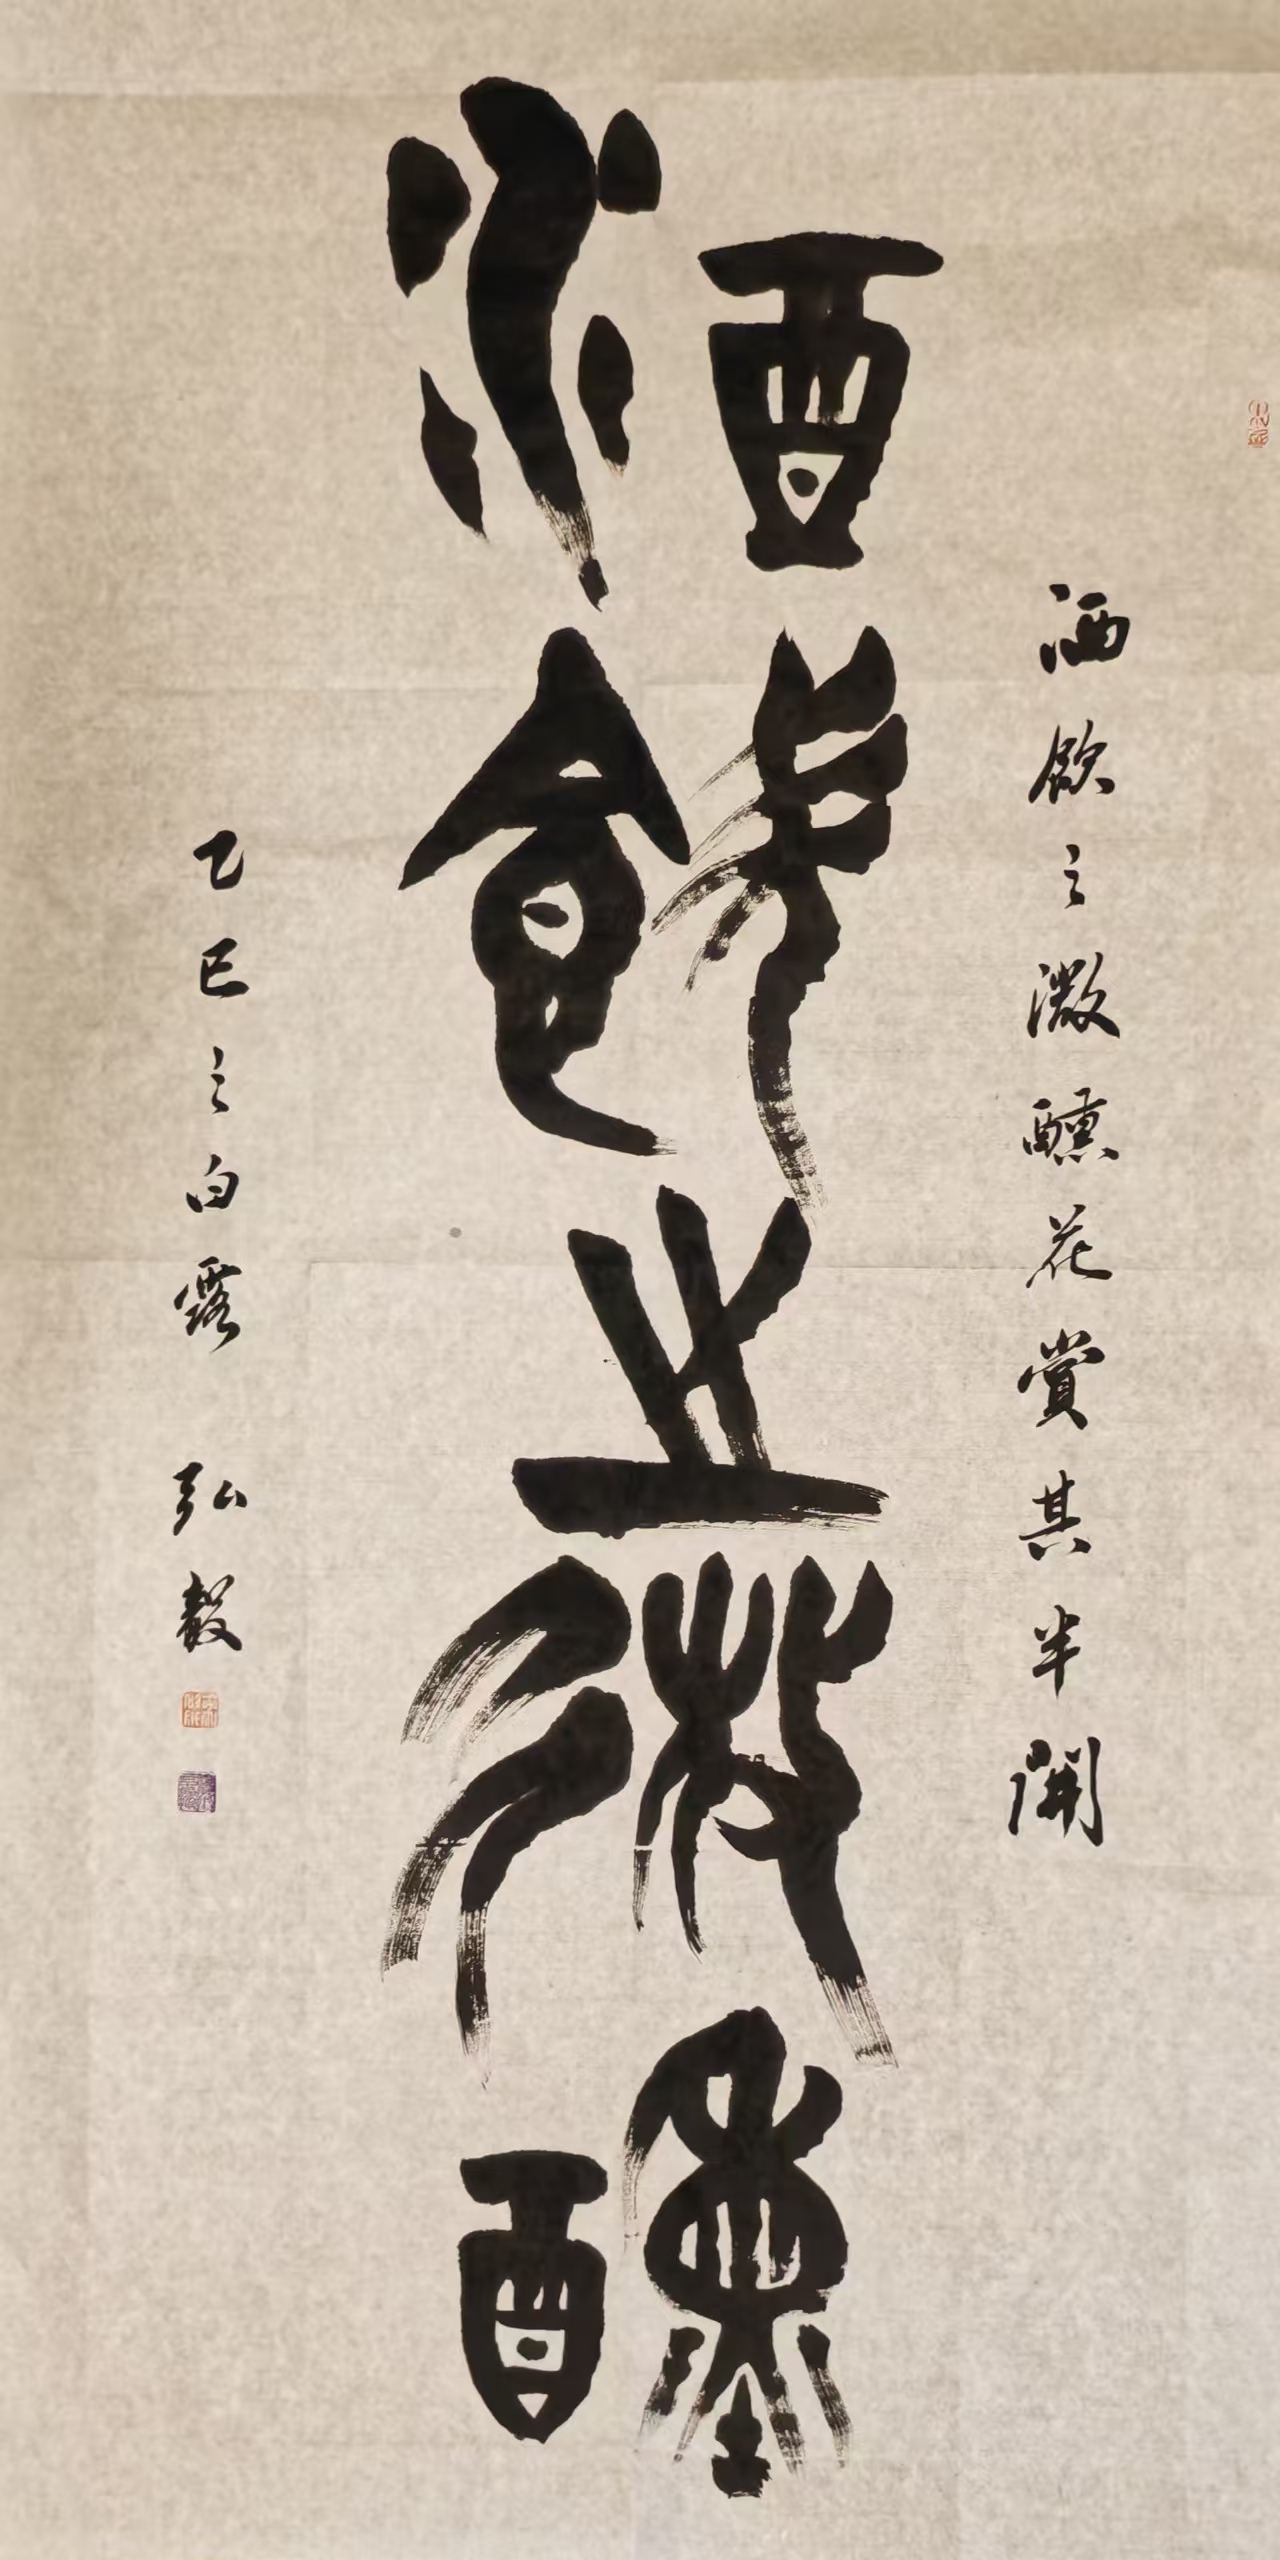 酒飲之微醺花賞其半開
酒飲之微醺
乙巳之白露 弘毅